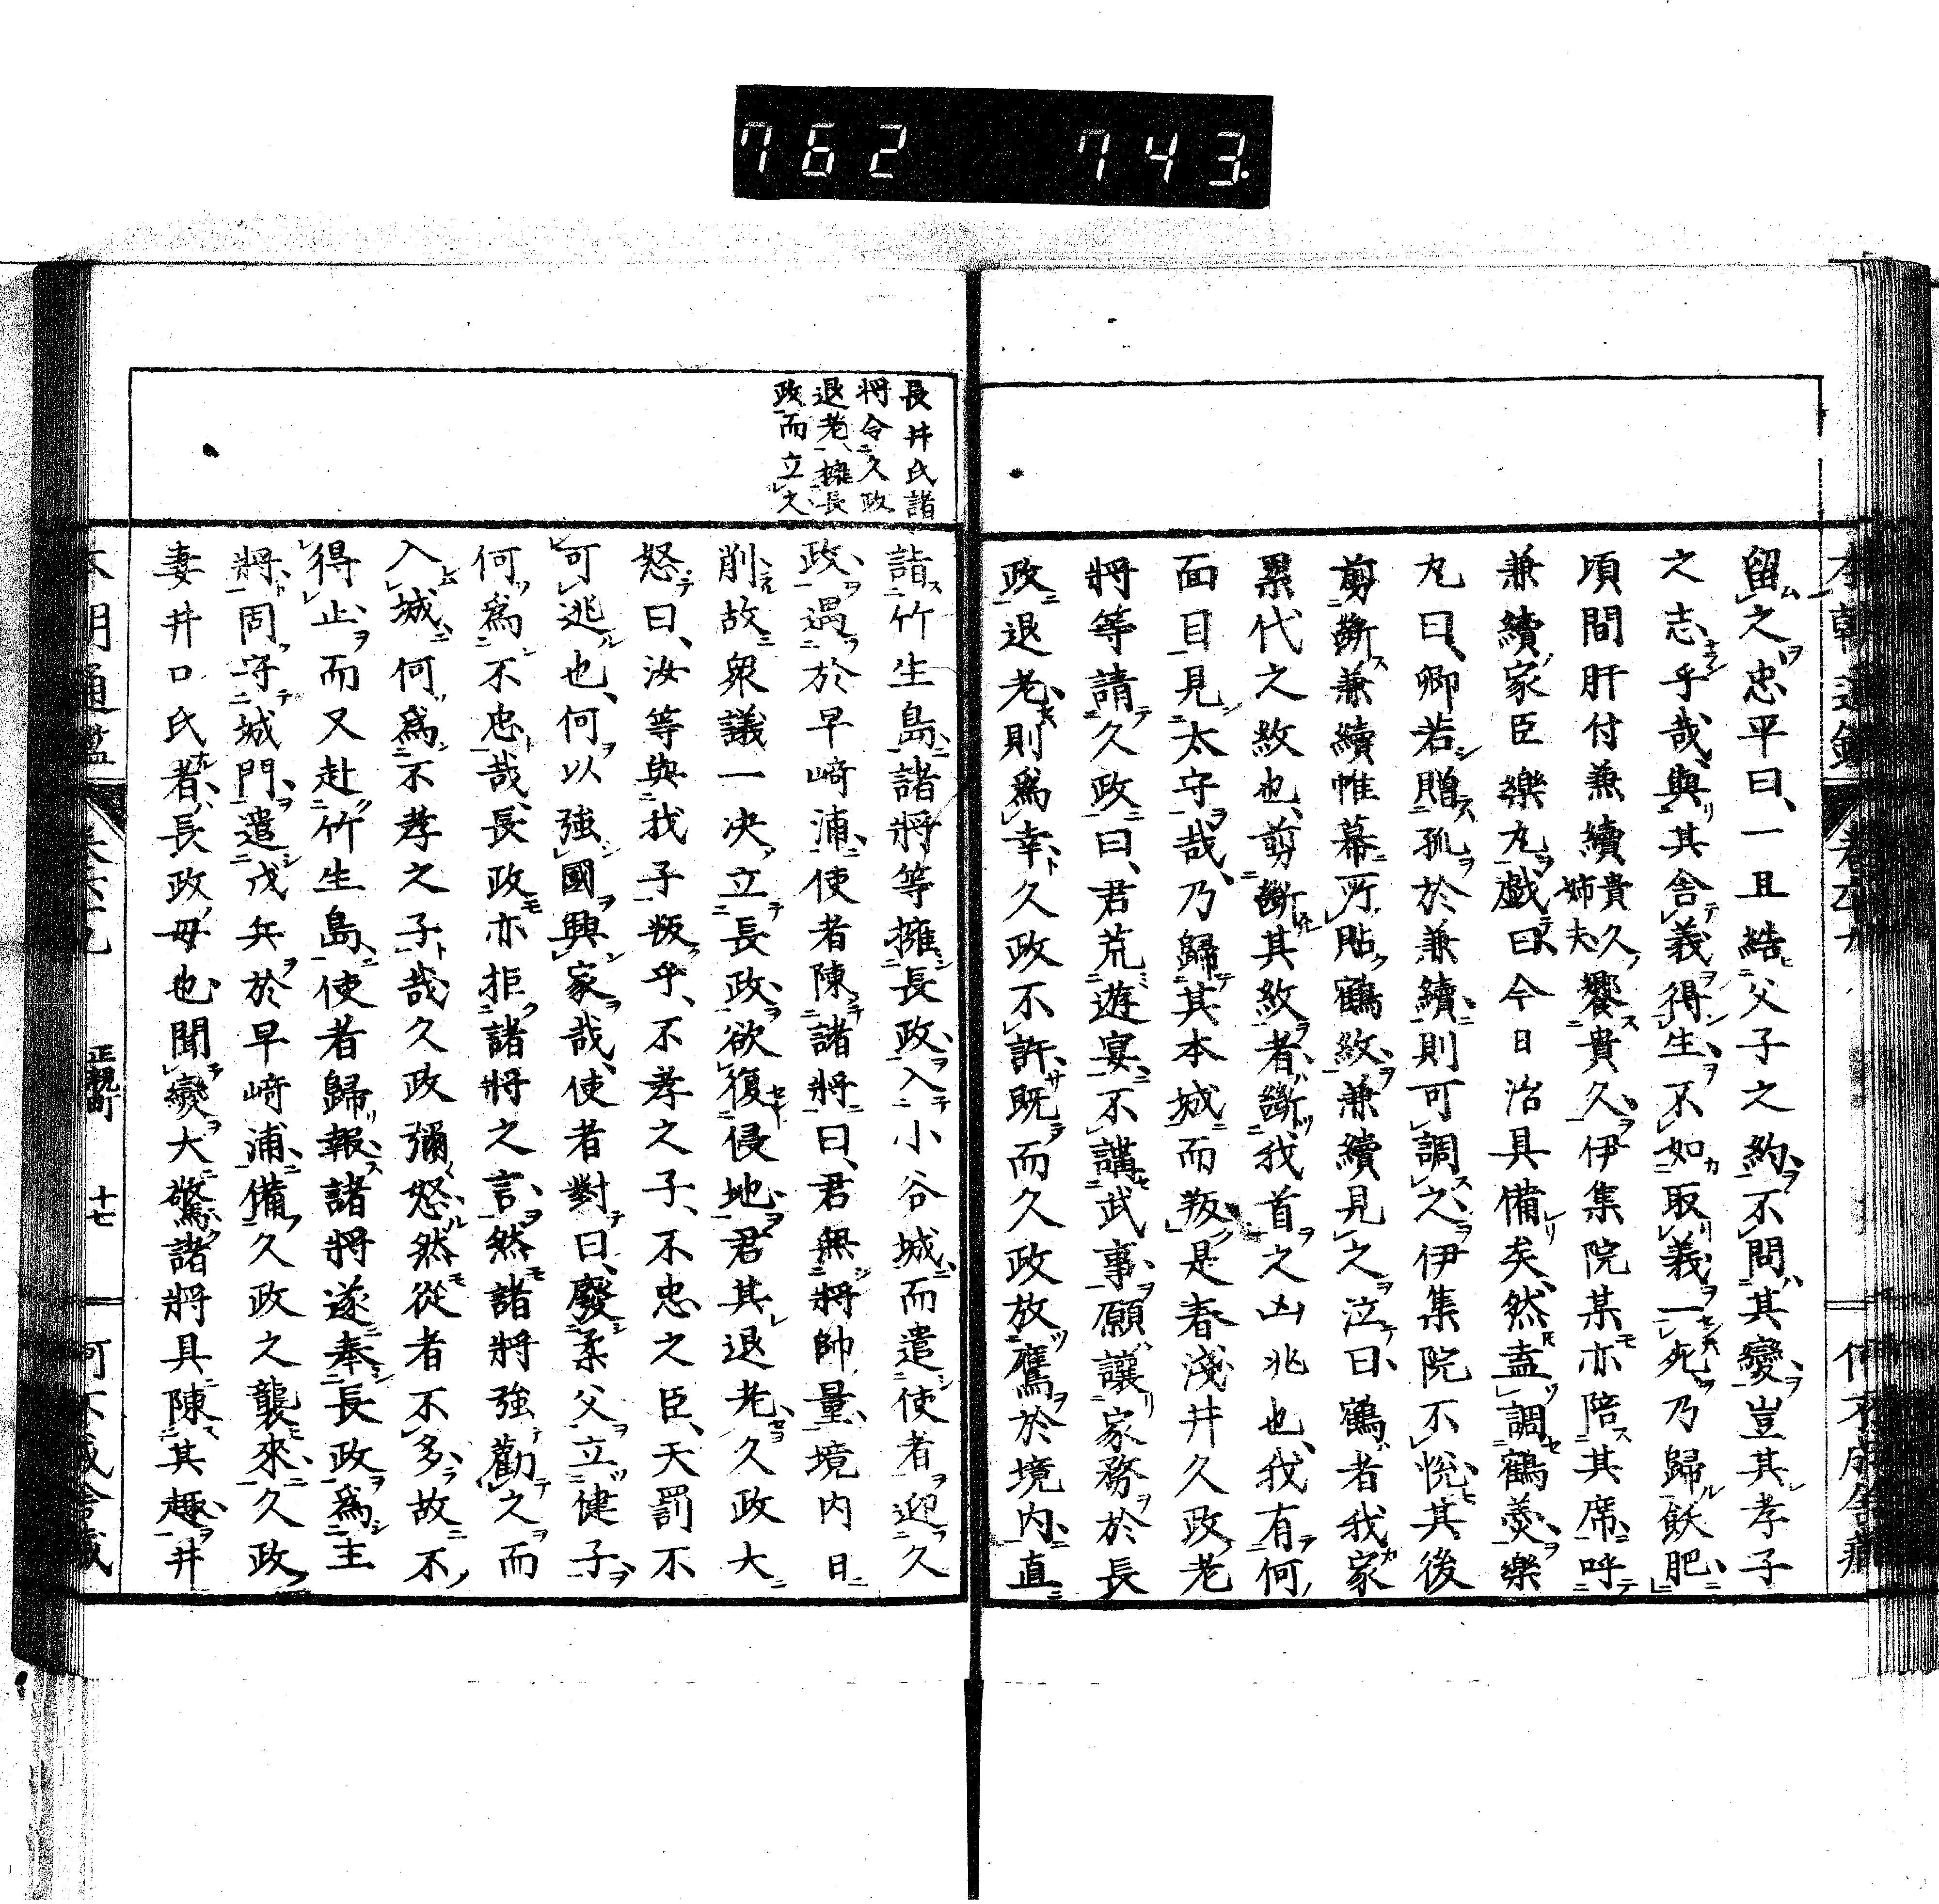 762 743.
留之忠平曰、一旦結父子之約、不問其變、豈其孝子
之志乎哉、與其舍義得生、不如取義一死、乃歸飫肥、
頃間肝付兼續貴久姉夫饗貴久、伊集院某亦陪其席、呼
兼續家臣藥丸戲曰、今日治具備矣、然盍調鶴羹、藥
丸曰、卿若贈孤於兼續、則可調之、伊集院不悅、其後
剪斷兼續帷幕所貼鶴紋、兼續見之泣曰、鶴者我家
累代之紋也、剪斷其紋者、斷我首之凶兆也、我有何
面目見太守哉、乃歸其本城而叛、是春淺井久政老
將等請久政曰、君荒遊宴、不講武事、願讓家務於長
政退老、則爲幸、久政不許、既而久政放鷹於境内、直
長井氏諸
將令久政
退老、擁長
政而立之
詣竹生島、諸將等擁長政、入小谷城、而遣使者迎久
政、遇於早﨑浦、使者陳諸將曰、君無將帥量、境内日
削、故衆議一決、立長政、欲復侵地、君其退老、久政大
怒曰、汝等與我子叛乎、不孝之子、不忠之臣、天罰不
可逃也、何以強國興家哉、使者對曰、廢柔父立健子、
何爲不忠哉、長政亦拒諸將之言、然諸將強勸之而
入城、何爲不孝之子哉、久政彌怒、然從者不多、故不
得止、而又赴竹生島、使者歸報諸將、遂奉長政爲主
將、固守城門、遣戍兵於早﨑浦、備久政之襲來、久政
妻井口氏者、長政母也、聞變大驚、諸將具陳其趣、井
正親町
十七